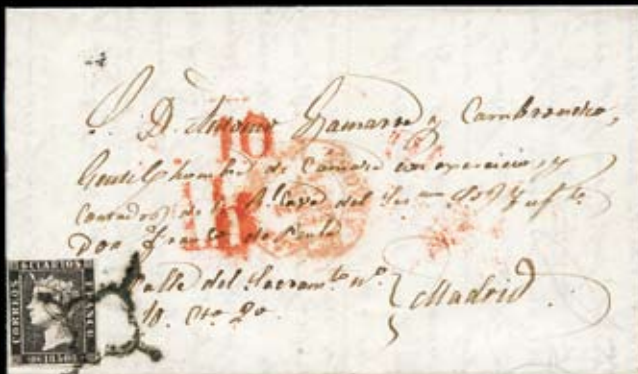 S. D. Antonio Gamarra y Cambronero,
10
Gentil hombre de Cámara con exercicio, y
Contador de la Rl. Casa del
Don Franco. de Paula
Calle del Sacramto. no.
10. Cto. 2o. Madrid
6 CUARTOS
CORREOS
FRANCO
1850